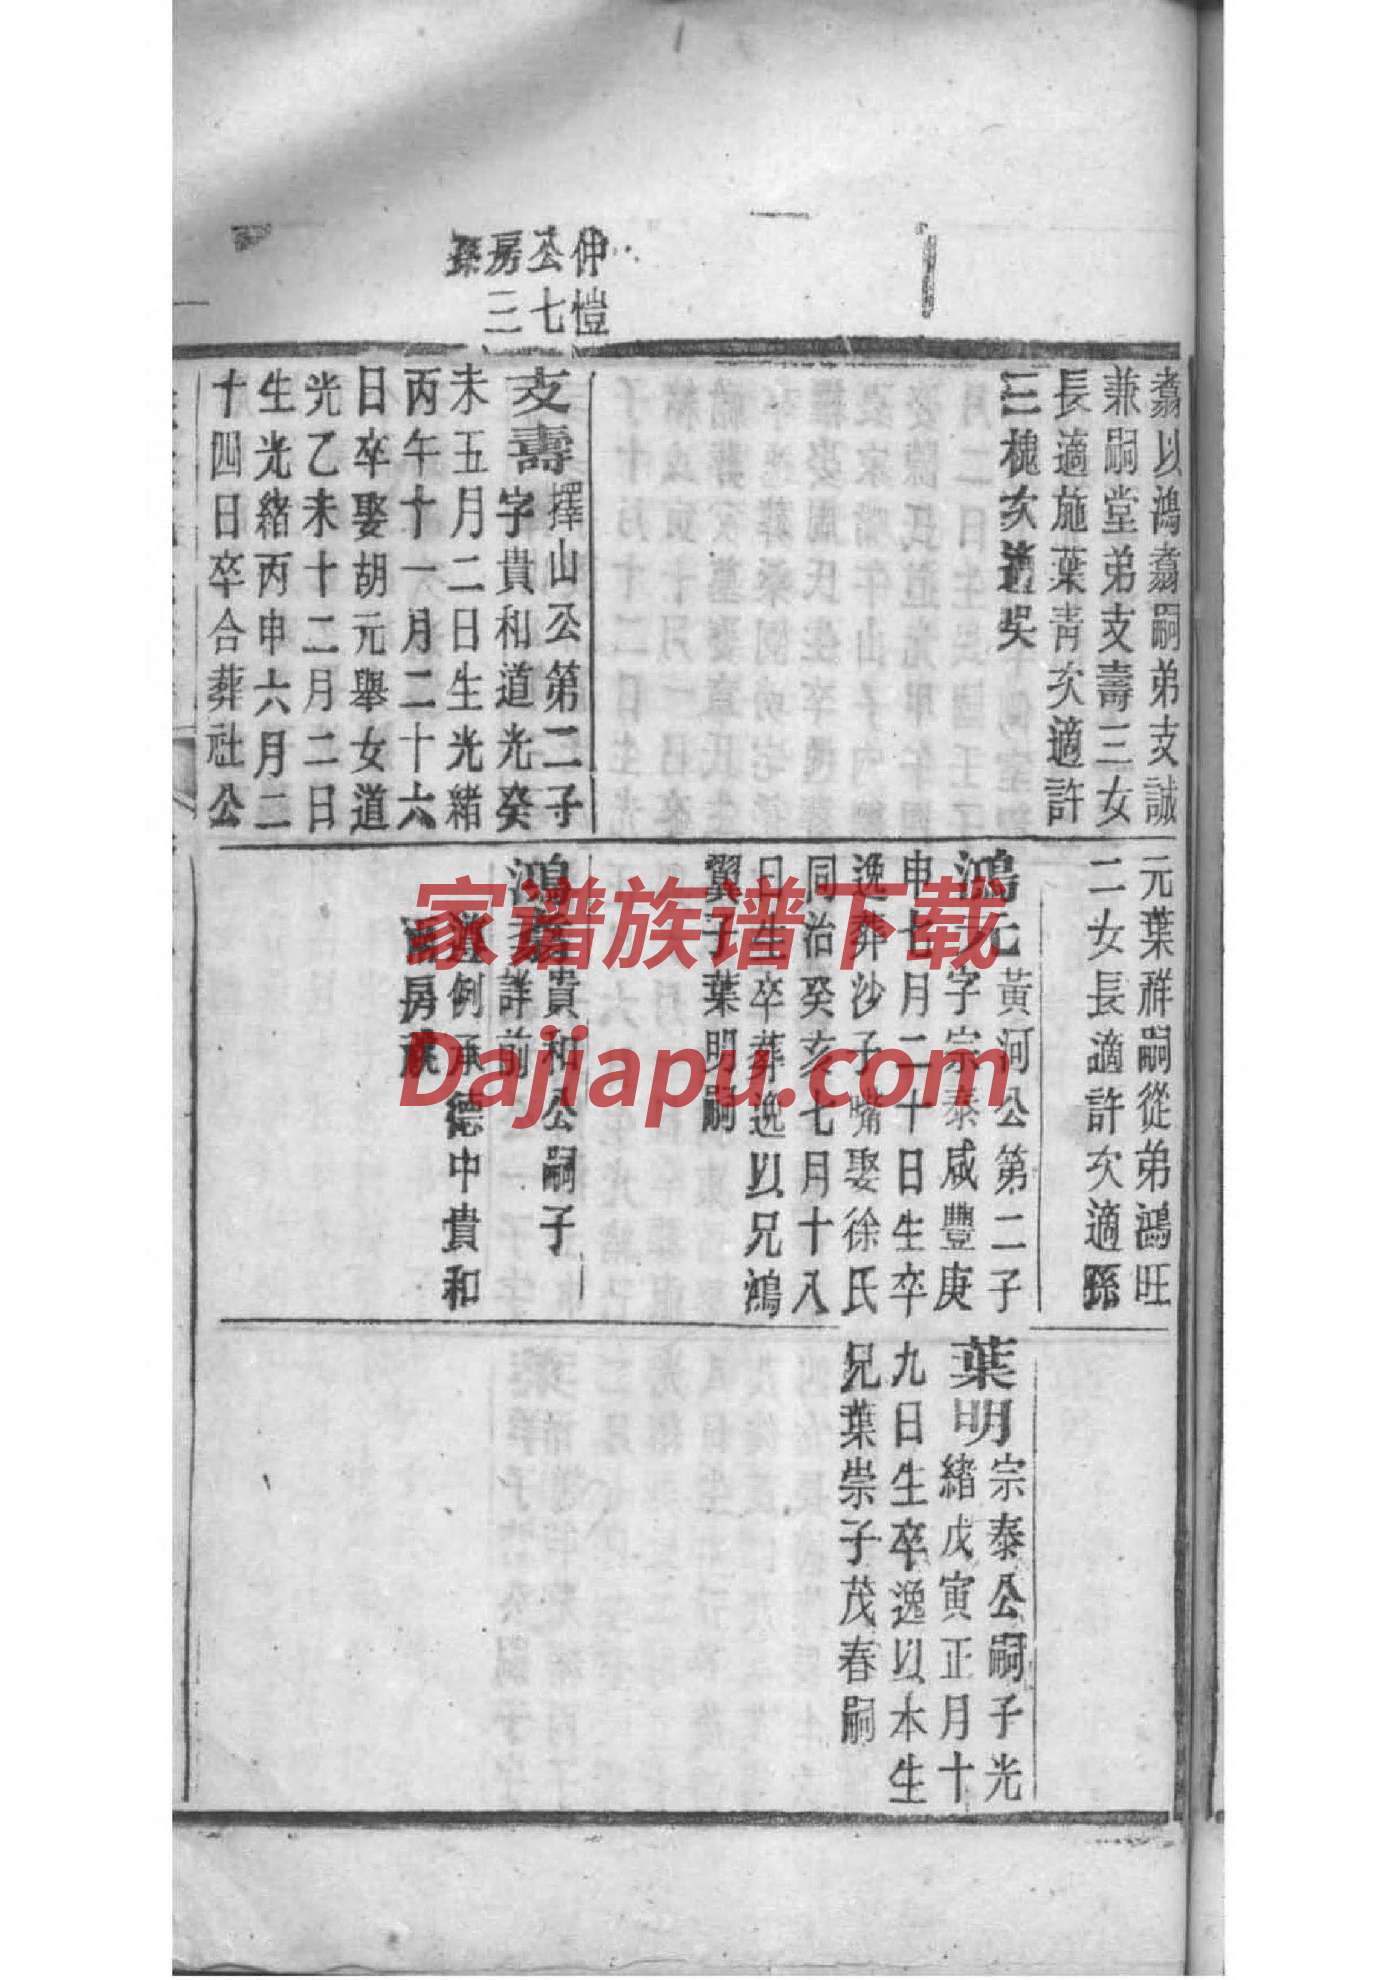 仲愷
公七
房三
孫
翥以鴻翥嗣弟支誠
兼嗣堂弟支壽三女
長適施葉青次適許
三槐次適吳
支壽擇山公第二子
字貴和道光癸
未五月二日生光緒
丙午十一月二十六
日卒娶胡元舉女道
光乙未十二月二日
生光緒丙申六月二
十四日卒合葬社公
元葉祥嗣從弟鴻旺
二女長適許次適孫
鴻元黃河公第二子
字宗泰咸豐庚
申七月二十日生卒
逸葬沙子嘴娶徐氏
同治癸亥七月十八
日生卒葬逸以兄鴻
翼子葉明嗣
鴻翥貴和公嗣子
詳前
例承德中貴和
房
葉明宗泰公嗣子光
緒戊寅正月十
九日生卒逸以本生
兄葉崇子茂春嗣
家谱族谱下载
Dajiapu.com